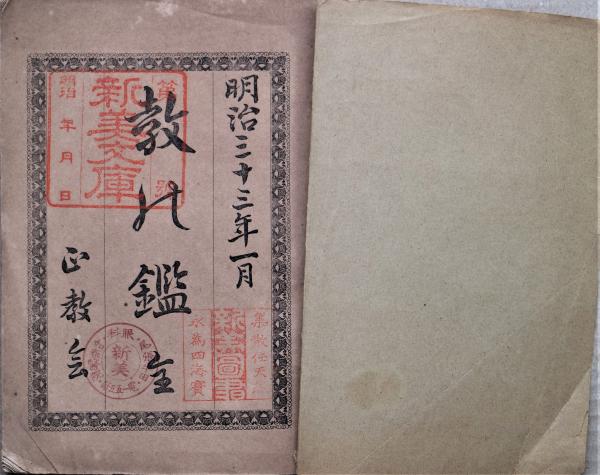 明治三十三年一月
教の鑑 全
正教会
第 号
新美文庫
明治 年 月 日
集散任天
永為四海寶
眼科
新美